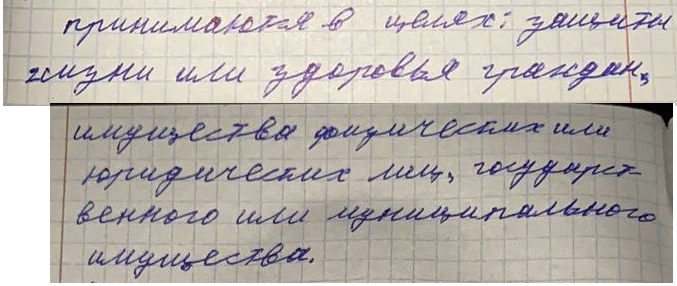 принимаются в целях: защиты
жизни или здоровья граждан,
имущества физических или
юридических лиц, государст-
венного или муниципального
имущества.